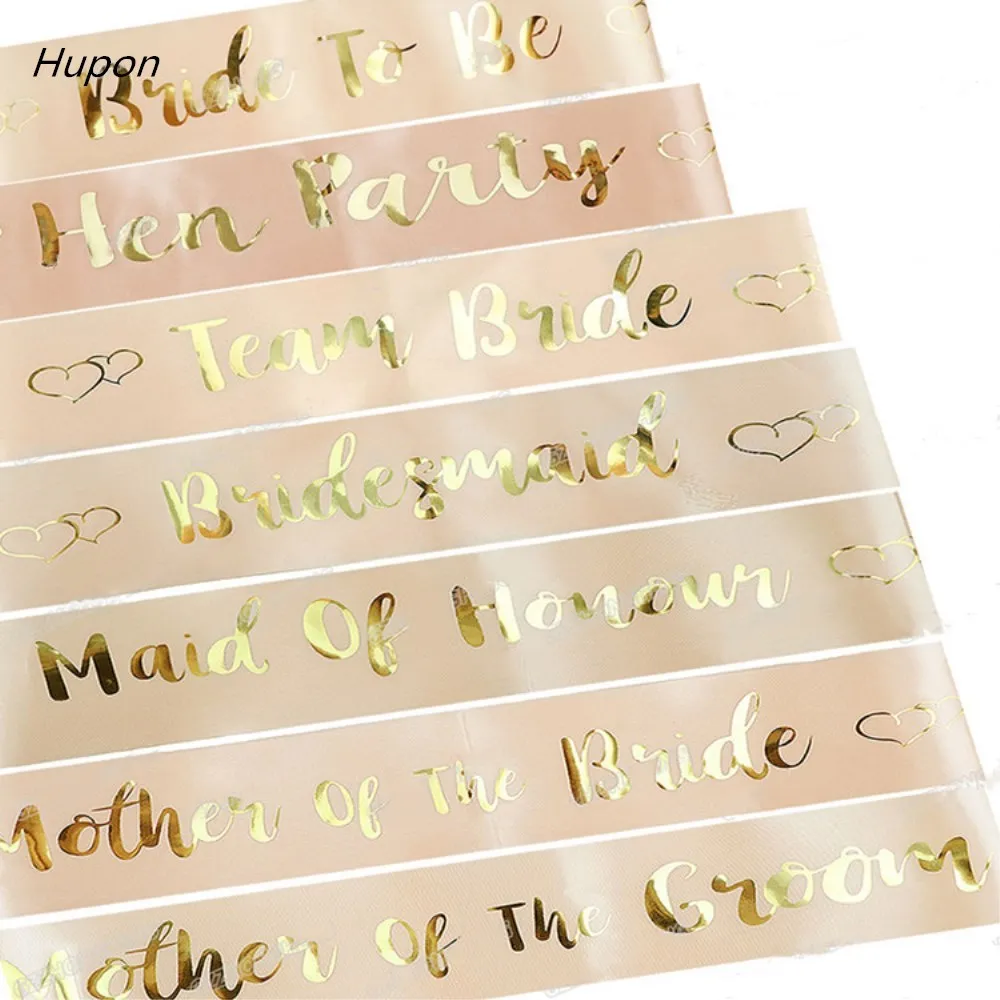 Hupon
Bride To Be
Hen Party
Team Bride
Bridesmaid
Maid Of Honour
Mother Of The Bride
Mother Of The Groom